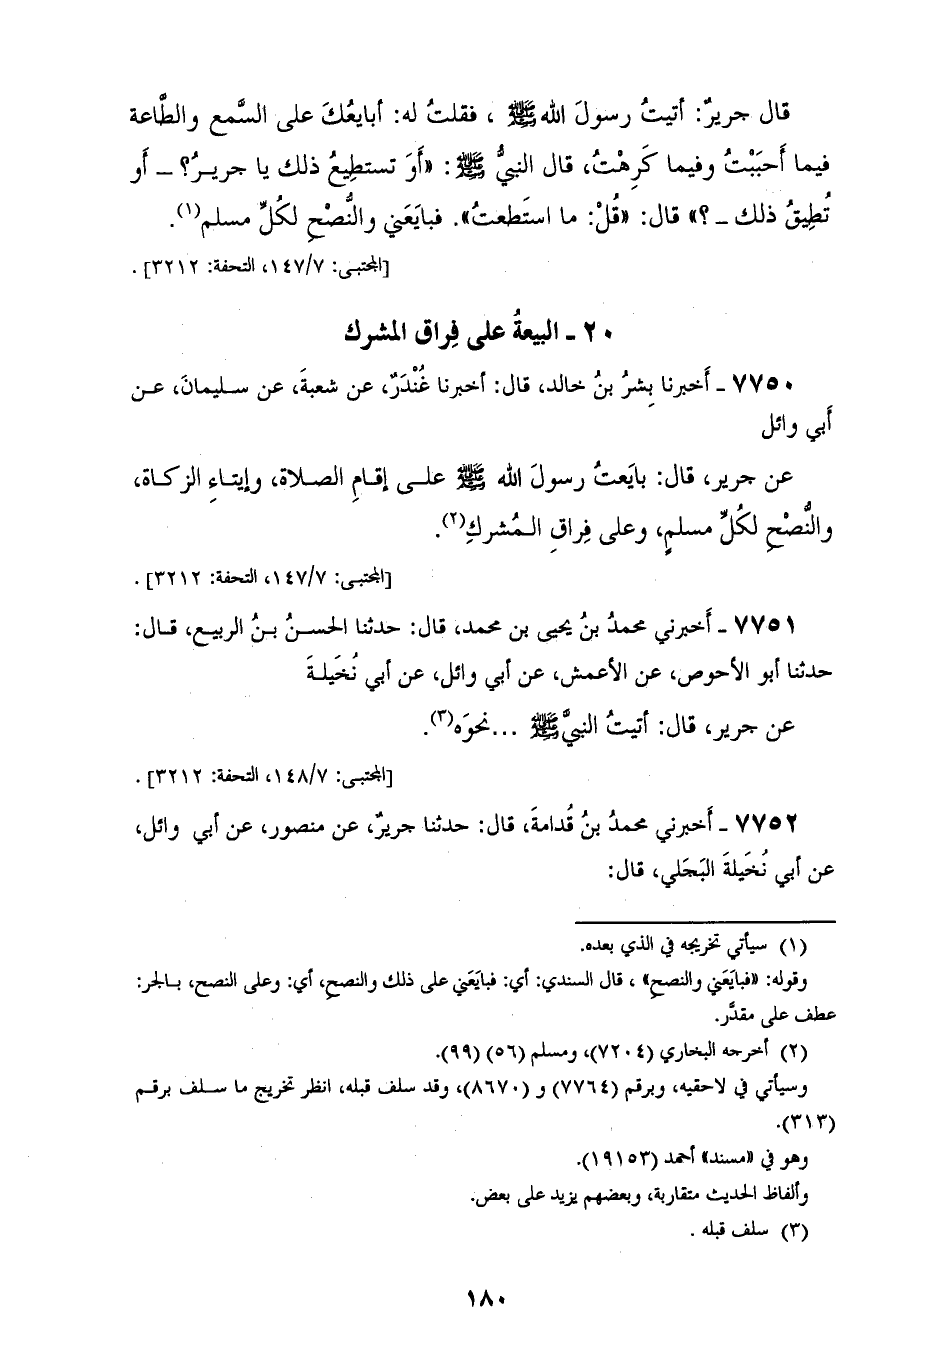 قال جريرٌ: أتيتُ رسولَ الله ﷺ ، فقلتُ له: أبايعُكَ على السَّمع والطَّاعة
فيما أَحبَبْتُ وفيما كَرِهْتُ، قال النبيُّ ﷺ: «أَوَ تستطِيعُ ذلك يا جريرُ؟ ـ أو
تُطِيقُ ذلك ـ ؟» قال: «قُلْ: ما استَطعتُ». فبايَعَني والنُّصْحِ لكُلِّ مسلم(١).
[المجتبى: ١٤٧/٧، التحفة: ٣٢١٢] .
٢٠ ـ البيعةُ على فِراق المشرك
٧٧٥٠ ـ أَخبرنا بِشرُ بنُ خالد، قال: أخبرنا غُنْدَرٌ، عن شعبةَ، عن سليمانَ، عن
أَبي وائل
عن جرير، قال: بايَعتُ رسولَ الله ﷺ على إقامِ الصلاة، وإيتاءِ الزكاة،
والنُّصْحِ لكُلِّ مسلمٍ، وعلى فِراقِ المُشركِ(٢).
[المجتبى: ١٤٧/٧، التحفة: ٣٢١٢] .
٧٧٥١ ـ أَخبرني محمدُ بنُ يحيى بن محمد، قال: حدثنا الحسنُ بنُ الربيع، قال:
حدثنا أبو الأحوص، عن الأعمش، عن أبي وائل، عن أبي نُخَيلةَ
عن جرير، قال: أتيتُ النبيَّ ﷺ ...نحوَه(٣).
[المجتبى: ١٤٨/٧، التحفة: ٣٢١٢] .
٧٧٥٢ ـ أَخبرني محمدُ بنُ قُدامةَ، قال: حدثنا جريرٌ، عن منصور، عن أبي وائل،
عن أبي نُخَيلةَ البَجَلي، قال:
(١) سيأتي تخريجه في الذي بعده.
وقوله: «فبايَعَني والنصحِ» ، قال السندي: أي: فبايَعَني على ذلك والنصحِ، أي: وعلى النصح، بالجر:
عطف على مقدَّر.
(٢) أخرجه البخاري (٧٢٠٤)، ومسلم (٥٦) (٩٩).
وسيأتي في لاحقيه، وبرقم (٧٧٦٤) و (٨٦٧٠)، وقد سلف قبله، انظر تخريج ما سلف برقم
(٣١٣).
وهو في «مسند» أحمد (١٩١٥٣).
وألفاظ الحديث متقاربة، وبعضهم يزيد على بعض.
(٣) سلف قبله .
١٨٠